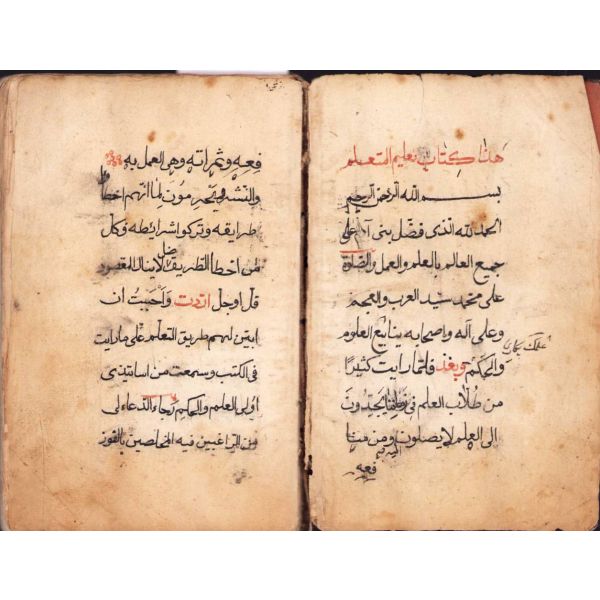 هذا كتاب تعليم المتعلم
بسم الله الرحمن الرحيم
الحمد لله الذى فضل بنى آدم على
جميع العالم بالعلم والعمل والصلوة
على محمد سيد العرب والعجم
وعلى آله واصحابه ينابيع العلوم
والحكم وبعد فلما رايت كثيرًا
من طلاب العلم فى زماننا يجدون
الى العلم لا يصلون ومن منا
فعه
فعه وثمراته وهى العمل به
والنشر يحرمون لما انهم اخطأ
طرايقه وتركوا شرايطه فكل
من اخطأ الطريق ضل لا ينال المقصود
قل او جل اردت واحببت ان
ابين لهم طريق التعلم على ما رايت
فى الكتب وسمعت من اساتيذى
اولى العلم والحكم رجاء الدعاء لى
من الراغبين فيه المخلصين بالفوز